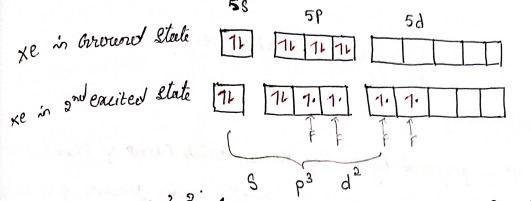 5s 5p 5d
xe in Ground state 1L 1L 1L 1L
xe in 2nd excited state 1L 1L 1. 1. 1. 1.
F F F F
S p3 d2